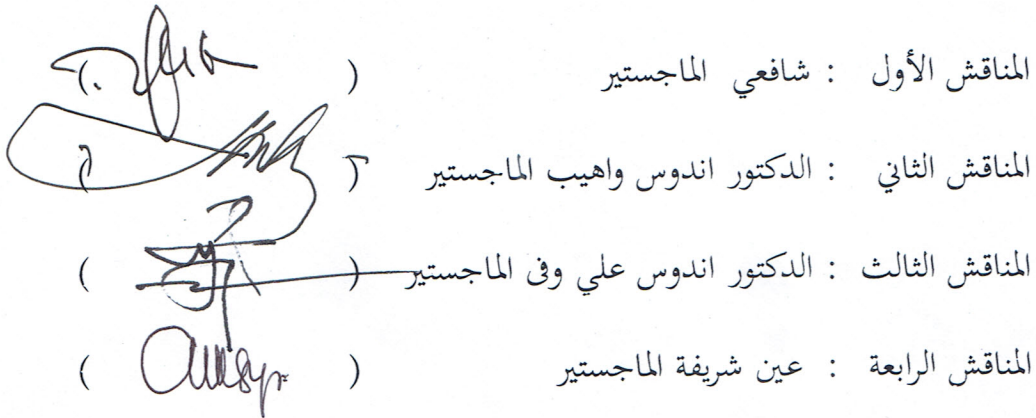 المناقش الأول : شافعي الماجستير ( )
المناقش الثاني : الدكتور اندوس واهيب الماجستير ( )
المناقش الثالث : الدكتور اندوس علي وفى الماجستير ( )
المناقش الرابعة : عين شريفة الماجستير ( )